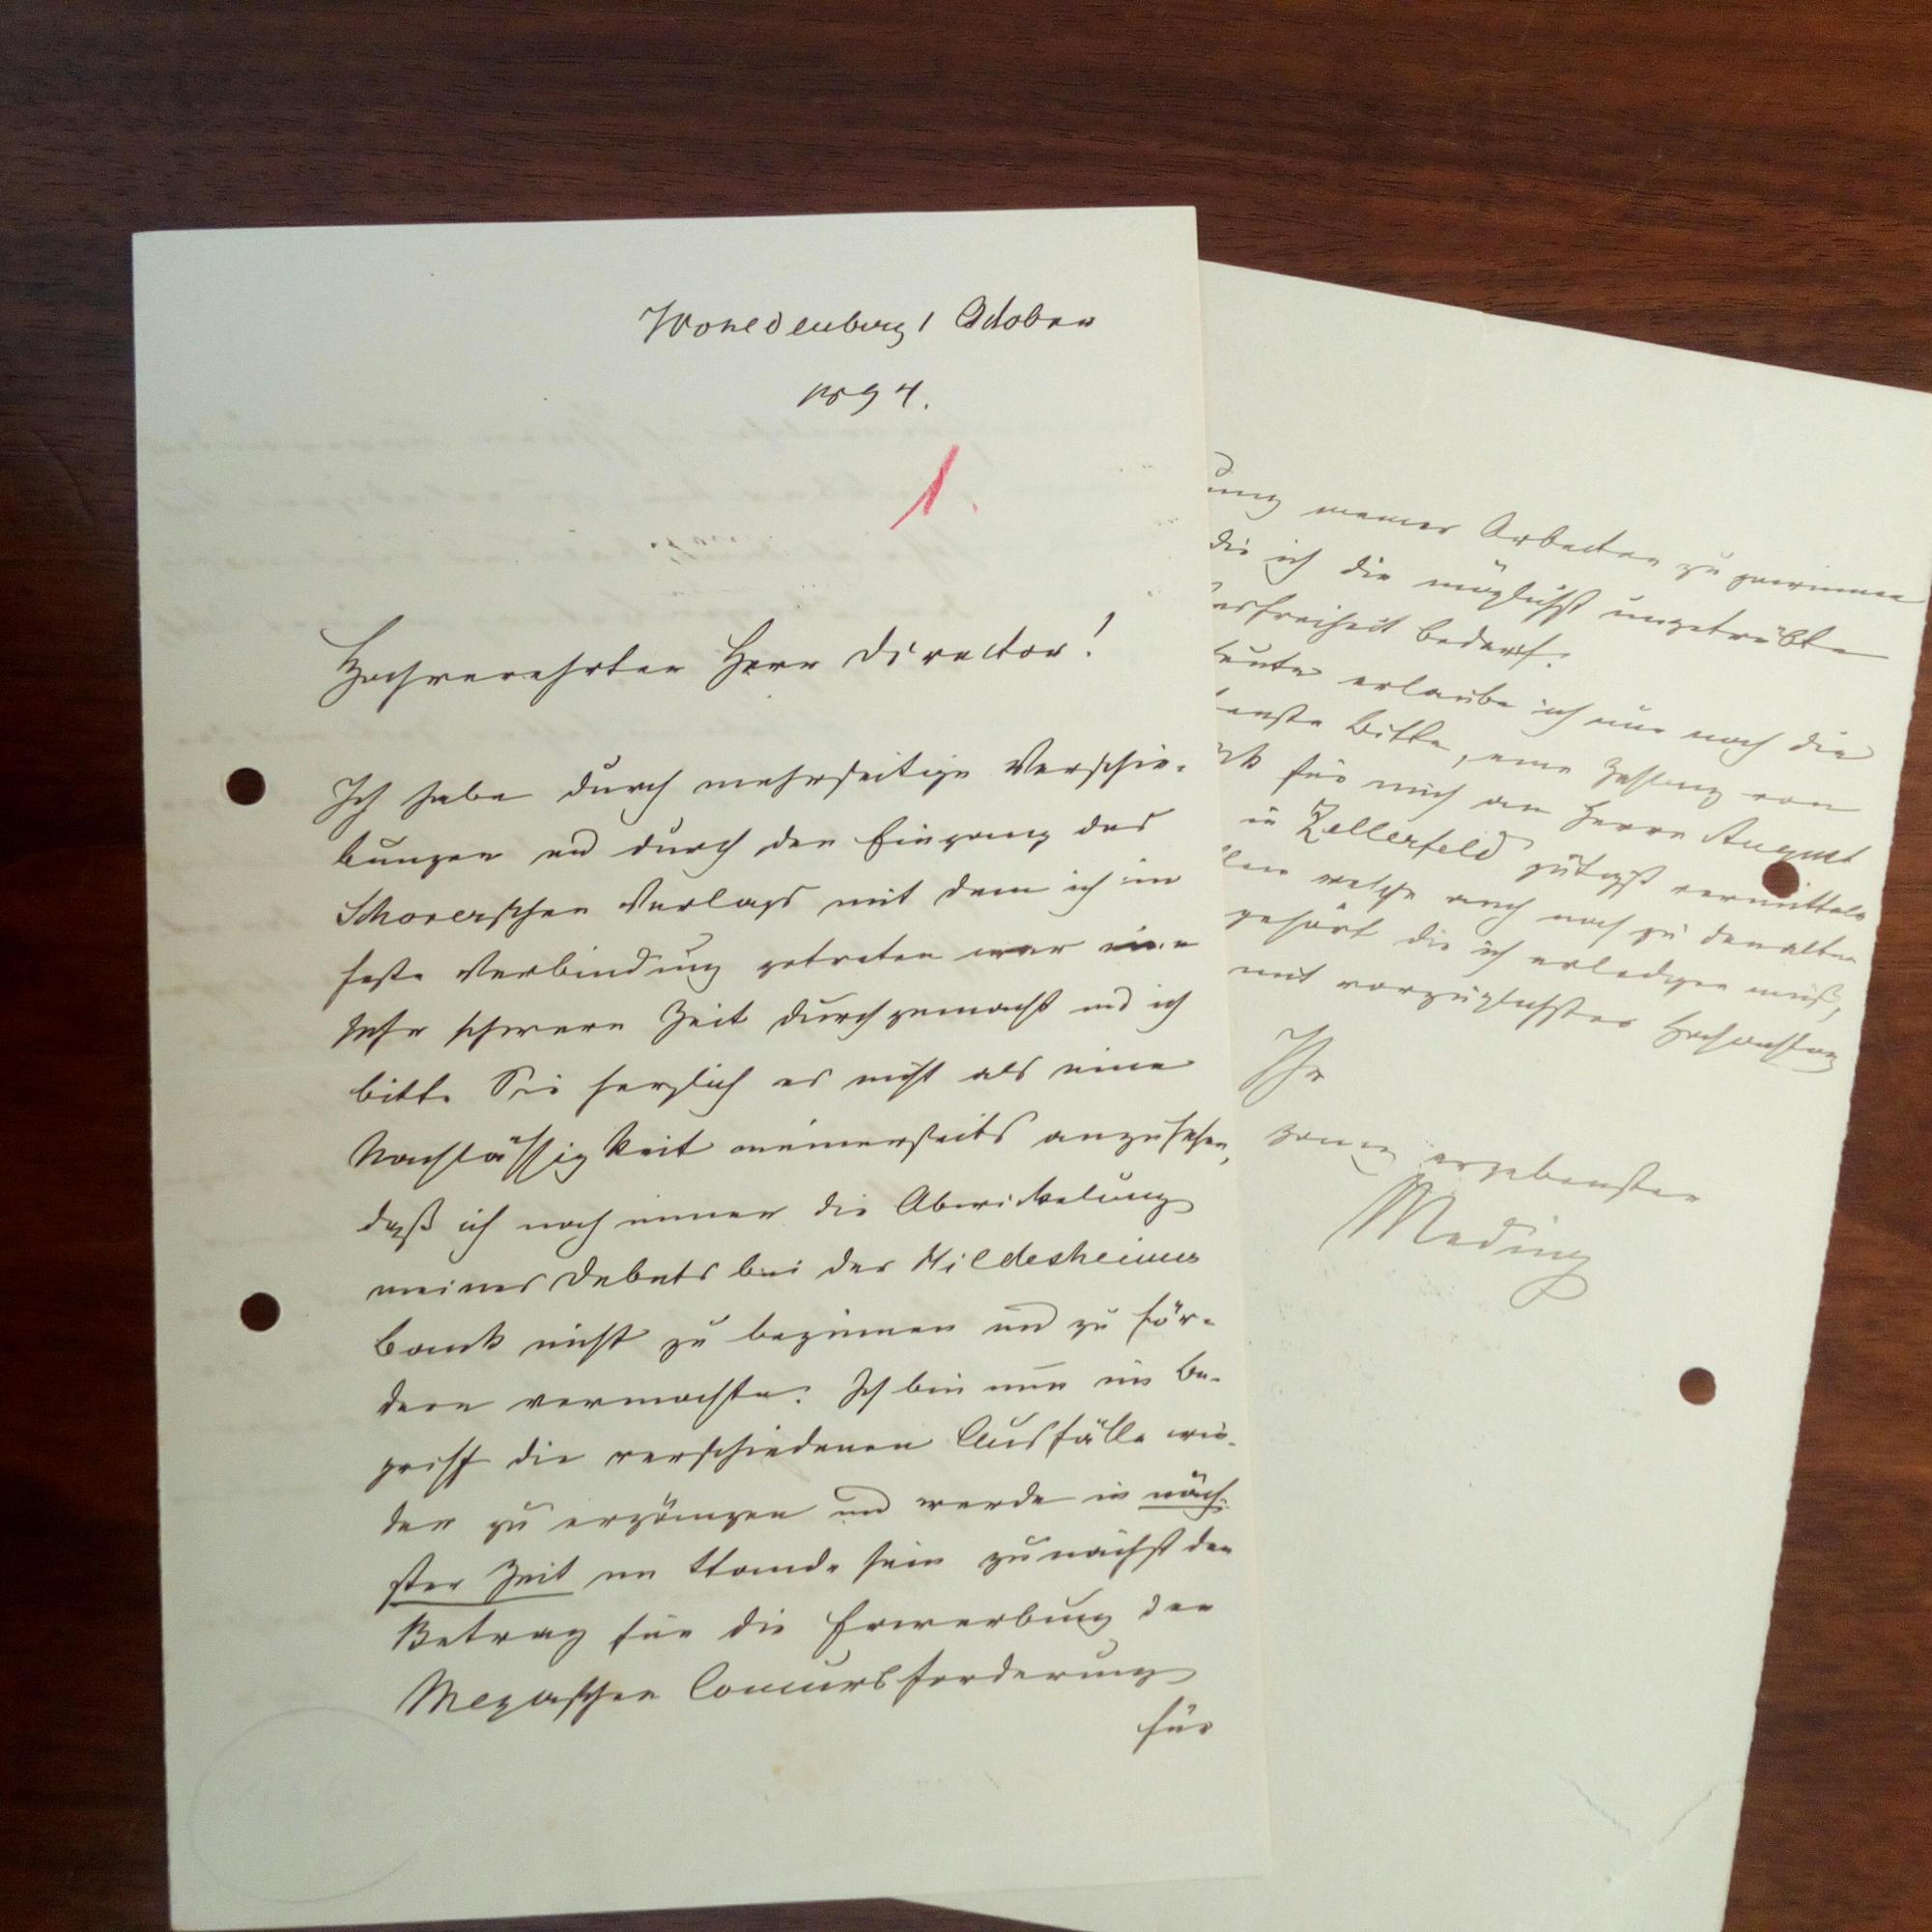 Wohldenberg 1 October
1894.
1.
Hochverehrter Herr Director!
Ich habe durch mehrseitige Verschie-
bungen und durch den Eingang des
Schorerschen Verlags mit dem ich in
feste Verbindung getreten war eine
sehr schwere Zeit durchgemacht und ich
bitte Sie herzlich es nicht als eine
Nachlässigkeit meinerseits anzusehen,
daß ich noch immer die Abwickelung
meines Debets bei der Hildesheimer
Bank nicht zu beginnen und zu för-
dern vermochte. Ich bin nun im Be-
griff die verschiedenen Ausfälle wie-
der zu ergänzen und werde in näch-
ster Zeit im Stande sein zunächst den
Betrag für die Erwerbung der
Concursforderung
für
ung meiner Arbeiten zu gewinnen
die ich die möglichst ungetrübte
esfreiheit bedarf.
heute erlaube ich nur noch die
benste Bitte, eine Zahlung von
rk für mich an Herrn August
in Zellerfeld gütigst vermitteln
llen welche auch noch zu den alten
gehört die ich erledigen muß,
mit vorzüglichster Hochachtung
Ihr
ganz ergebenster
Meding